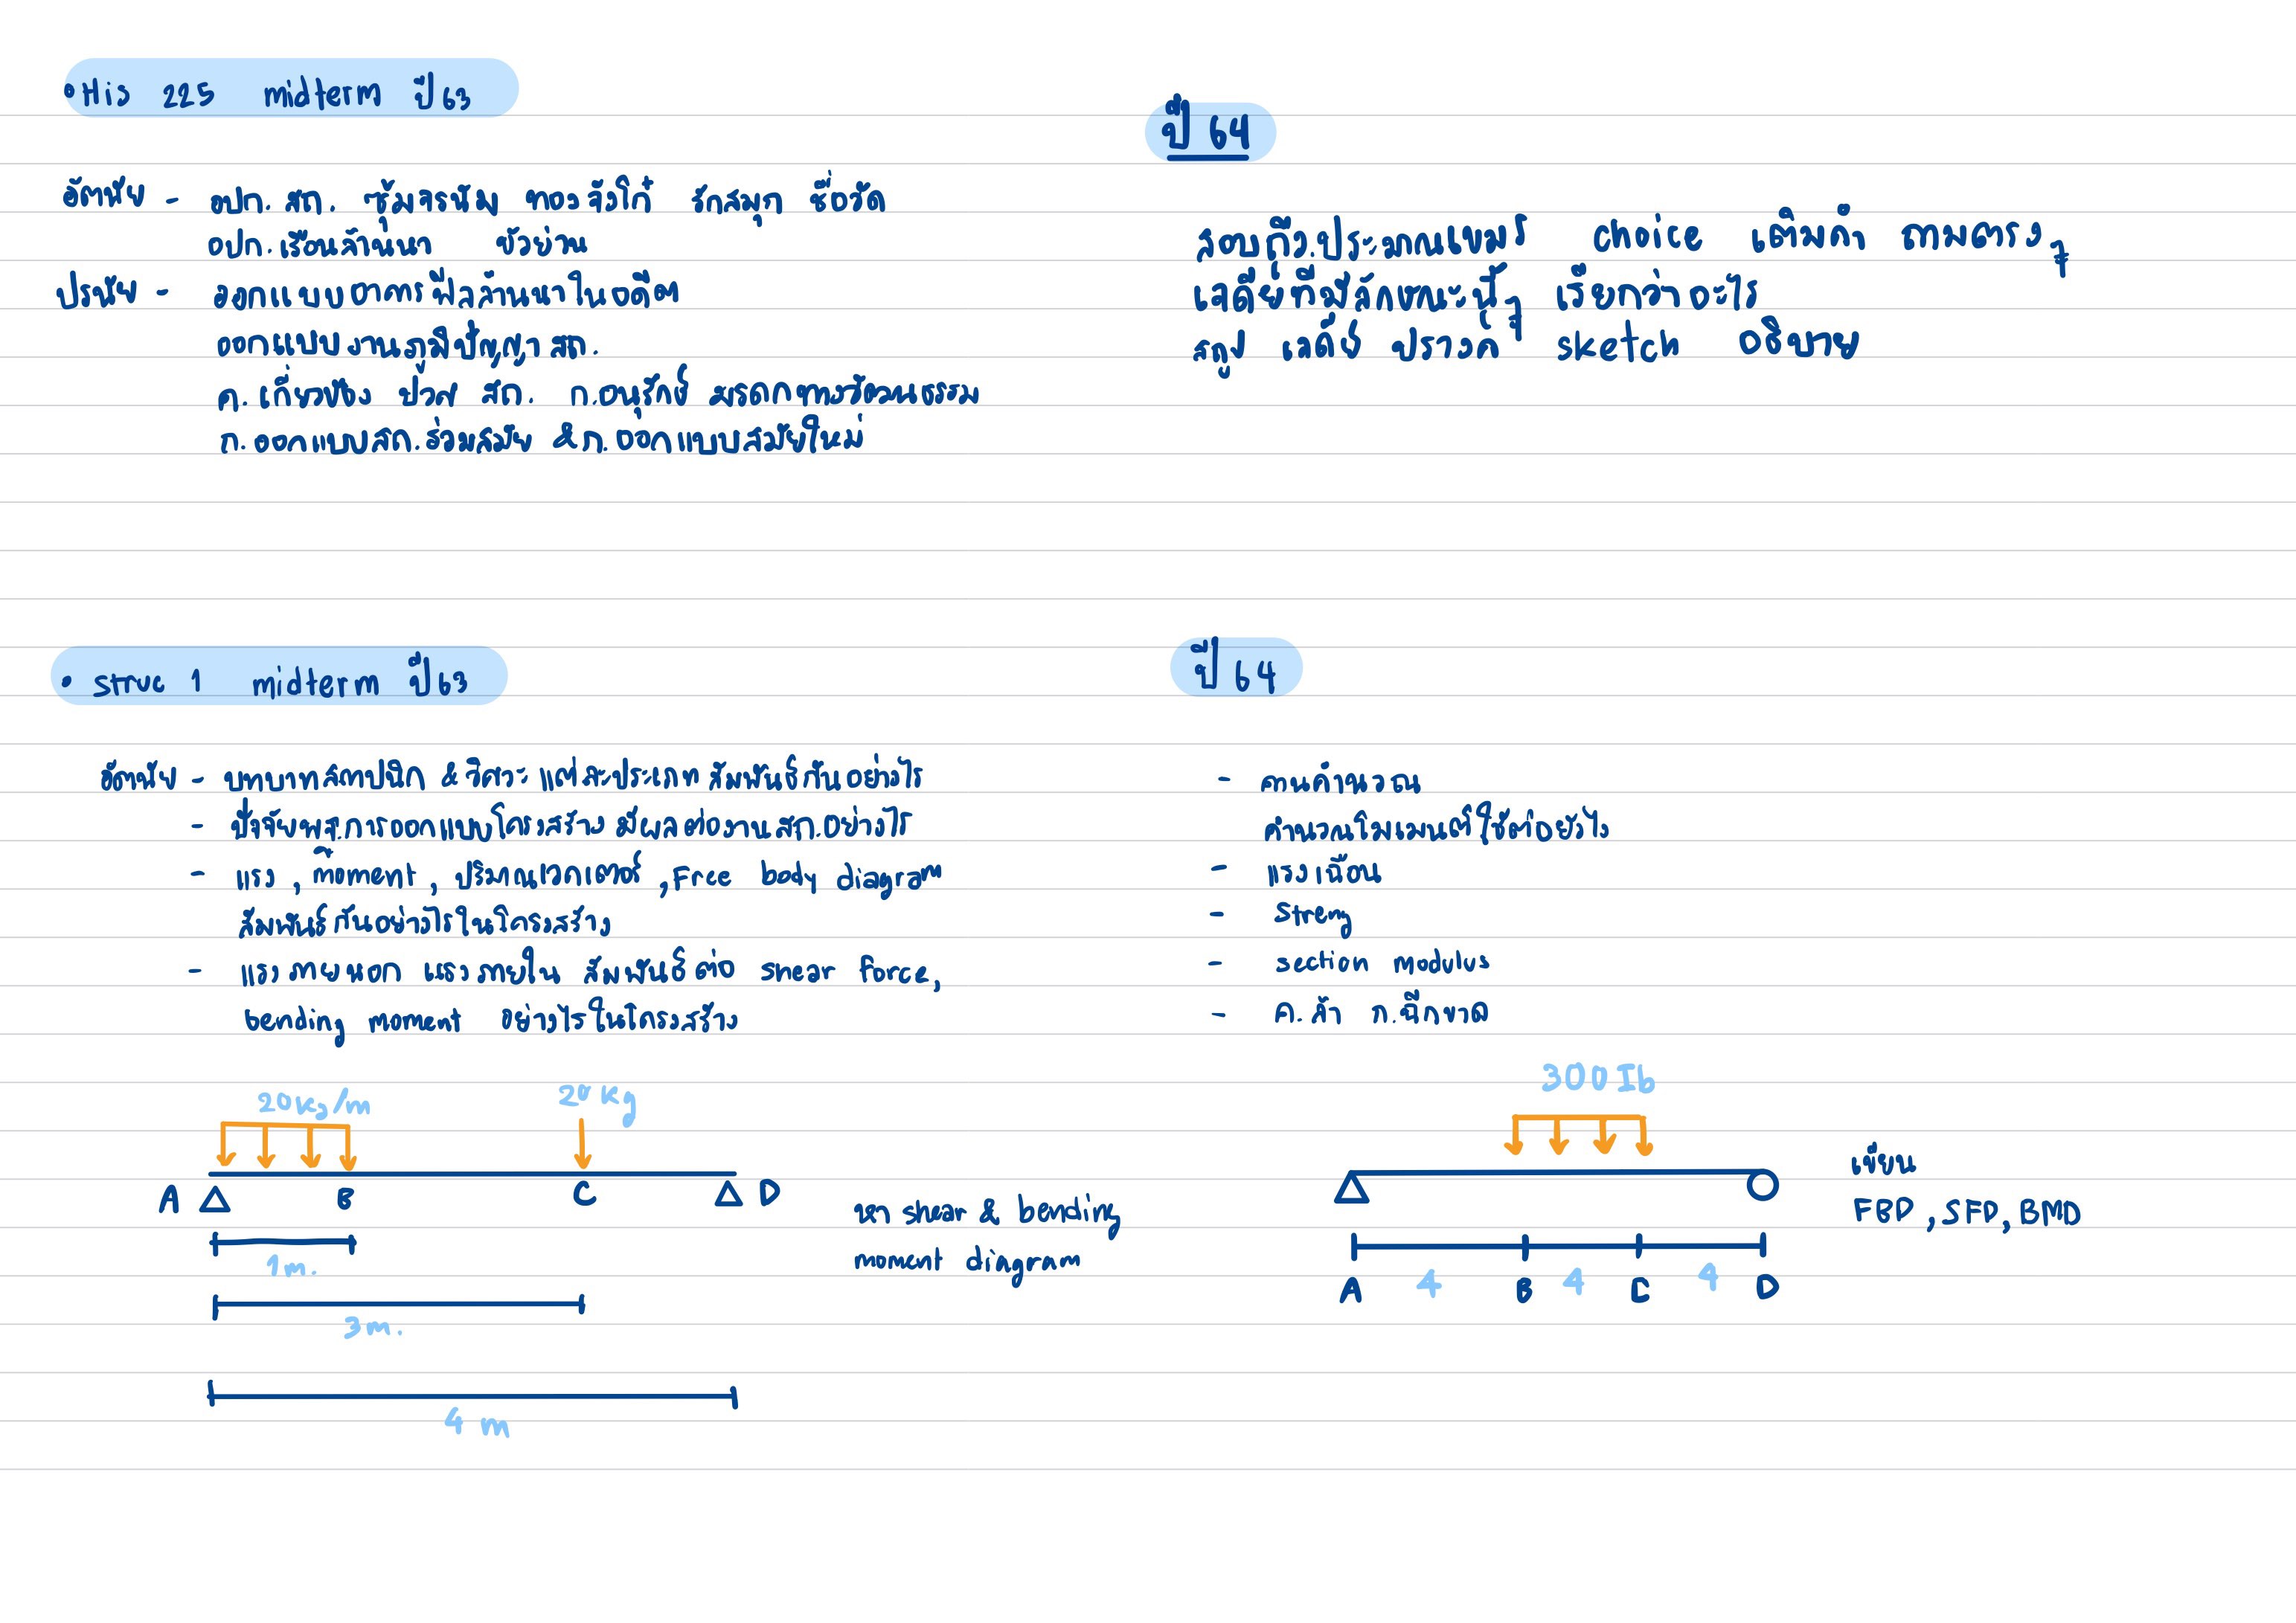 •His 225 midterm ปี 63
อัตนัย - อปก. สถ. ซุ้มจรนัม ทองจังโก๋ รักสมุก ชื่อวัด
อปก.เรือนล้านนา ขัวย่าน
ปรนัย - ออกแบบอาคารฟีลล้านนาในอดีต
ออกแบบงานภูมิปัญญา สถ.
ค. เกี่ยวข้อง ปวศ สถ. ก.อนุรักษ์ มรดกทางวัฒนธรรม
ก.ออกแบบสถ.ร่วมสมัย & ก.ออกแบบสมัยใหม่
ปี 64
สอบถึง.ประมาณเขมร choice เติมคำ ถามตรงๆ
เจดีย์ที่มีลักษณะนี้ๆ เรียกว่าอะไร
สถูป เจดีย์ ปรางค์ sketch อธิบาย
• struc 1 midterm ปี 63
อัตนัย - บทบาทสถาปนิก & วิศวะ แต่ละประเภท สัมพันธ์กันอย่างไร
- ปัจจัยพจ.การออกแบบโครงสร้าง มีผลต่องานสถ.อย่างไร
- แรง , moment , ปริมาณเวกเตอร์ , Free body diagram
สัมพันธ์กันอย่างไรในโครงสร้าง
- แรงภายนอก แรงภายใน สัมพันธ์ต่อ shear force,
bending moment อย่างไรในโครงสร้าง
20kg/m 20 kg
A B C D
1m.
3m.
4 m
หา shear & bending
moment diagram
ปี 64
- คานคำนวณ
คำนวณโมเมนต์ใช้ต่อยังไง
- แรงเฉือน
- Streng
- section modulus
- ค.ล้า ก.ฉีกขาด
300 Ib
A 4 B 4 C 4 D
เขียน
FBD , SFD, BMD